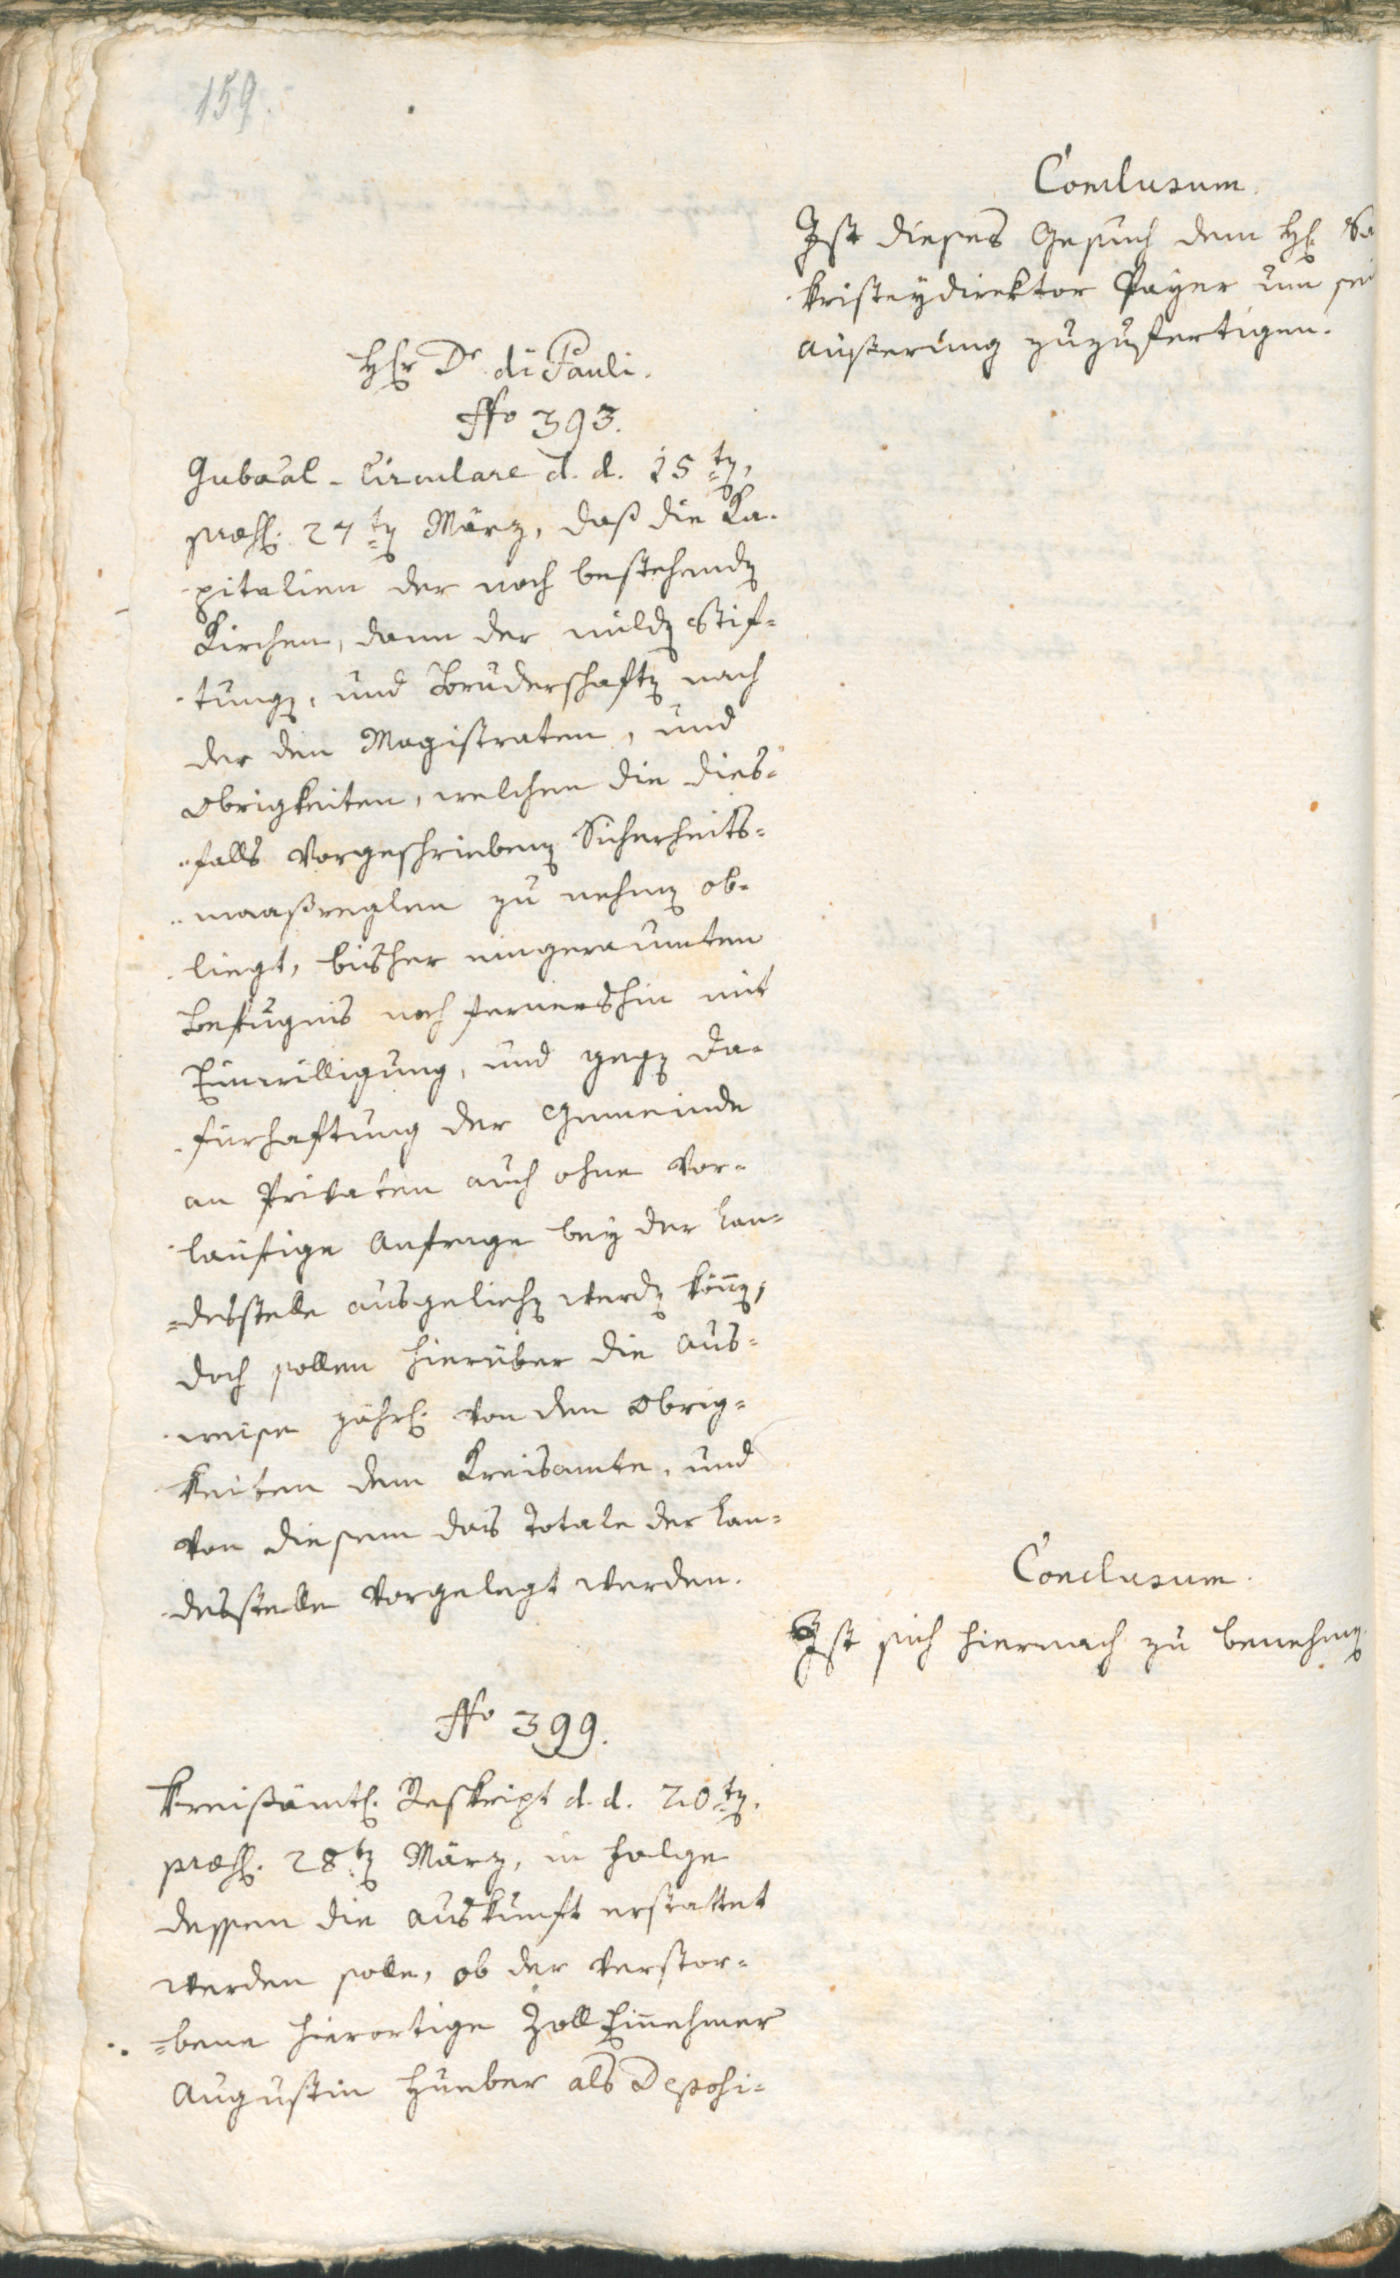 159.
Conclusum.
Ist dieses Gesuch dem H: Sa
kristeydirektor Payer um sei
äußerung zuzufertigen.
Hr Dr di Pauli.
No 393.
Gubaal-Circulare d. d. 15ten,
præs: 27ten März, daß die Ka-
pitalien der noch bestehenden
Kirchen, dann der milden Stif-
tungen, und Bruderschaften nach
der den Magistraten, und
Obrigkeiten, welchen die dies-
falls vorgeschriebenen Sicherheits-
maaßreglen zu nehmen ob-
liegt, bisher eingeraumten
Befugnis noch fernershin mit
Einwilligung, und gegen Da-
fürhaftung der Gemeinde
an Privaten auch ohne vor-
läufige Anfrage bey der Lan-
desstelle ausgeliehen werden könen,
doch sollen hierüber die Aus-
weise jährl: von den Obrig-
keiten dem Kreisamte, und
von diesem das Totale der Lan-
desstelle vorgelegt werden.
Conclusum.
Ist sich hiernach zu benehmen
No 399.
Kreißämtl: Reskript d. d. 20ten.
præs: 28ten März, in Folge
dessen die Auskunft erstattet
werden solle, ob der verstor-
bene hierortige Zoll Einnehmer
Augustin Hueber als Deposi-